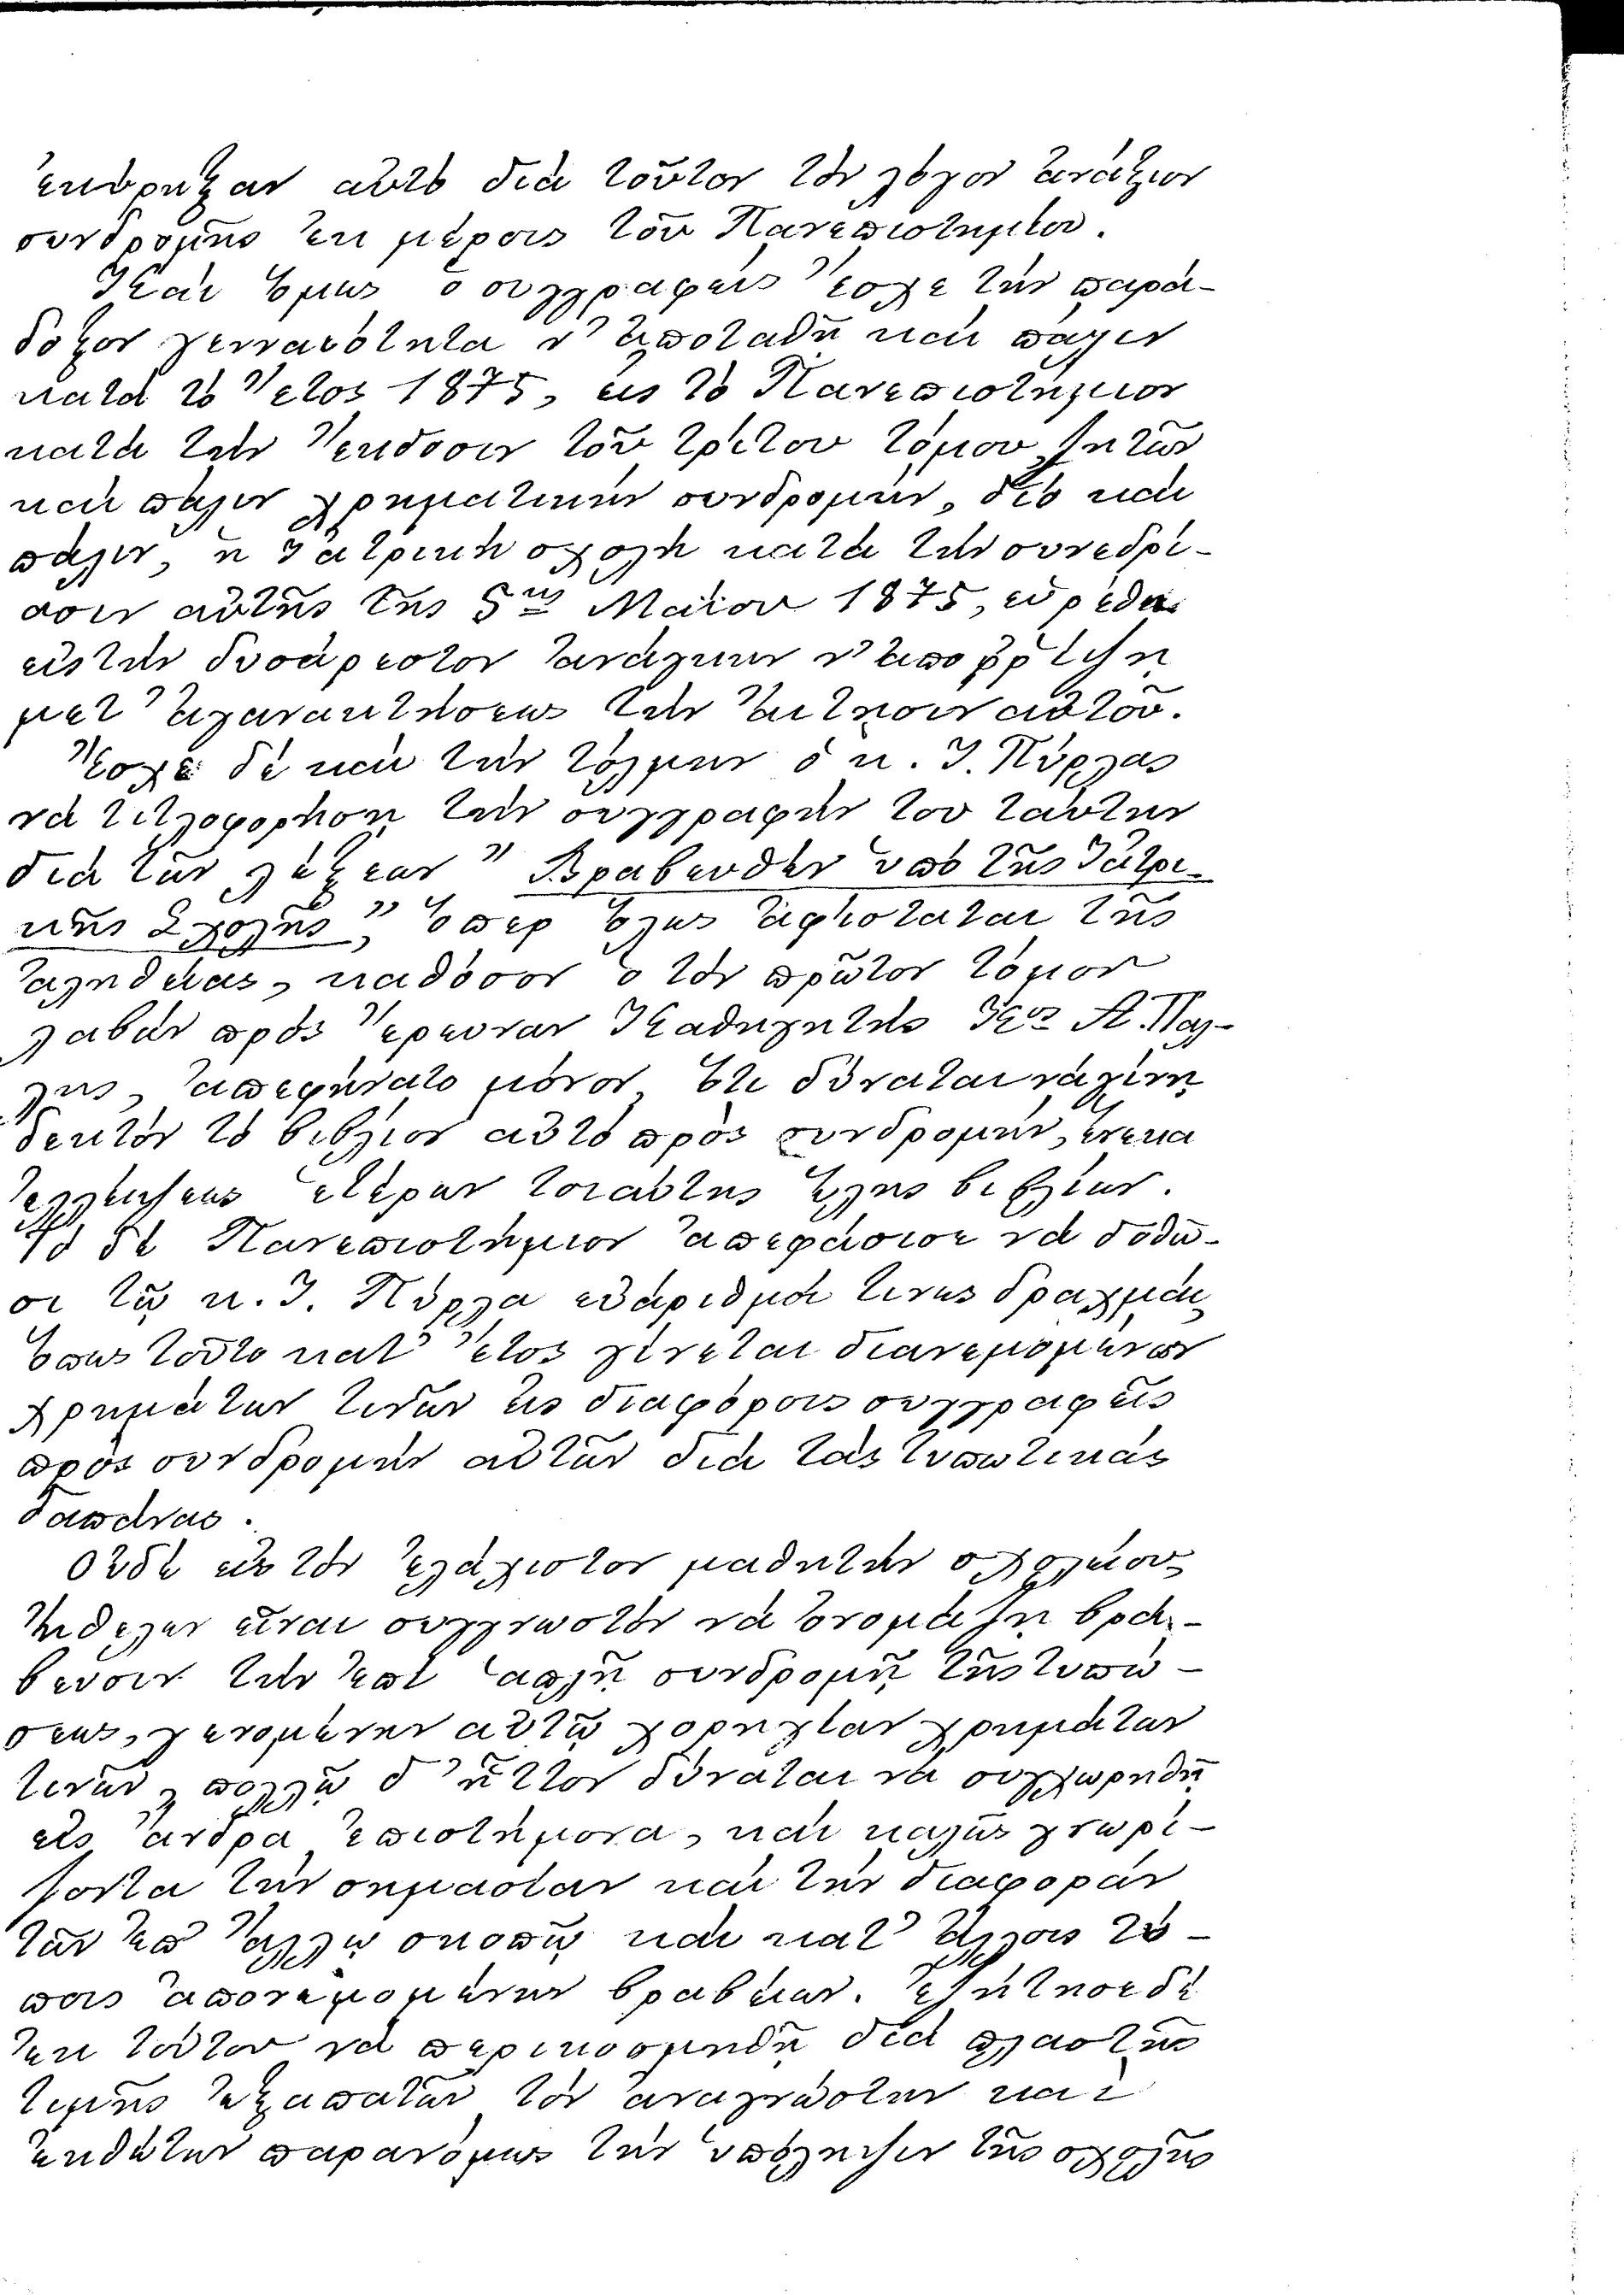 ἐκύρηξαν αὐτὸ διὰ τοῦτον τὸν λόγον ἀνάξιον
συνδρομῆς ἐκ μέρους τοῦ Πανεπιστημίου.
Καὶ ὅμως ὁ συγγραφεὺς ἔσχε τὴν παρά-
δοξον γενναιότητα ν' ἀποταθῇ καὶ πάλιν
κατὰ τὸ ἔτος 1875, εἰς τὸ Πανεπιστήμιον
κατὰ τὴν ἔκδοσιν τοῦ τρίτου τόμου, ζητῶν
καὶ πάλιν χρηματικὴν συνδρομήν, διὸ καὶ
πάλιν, ἡ Ἰατρικὴ σχολὴ κατὰ τὴν συνεδρί-
ασιν αὐτῆς τῆς 5ης Μαΐου 1875, εὑρέθη
εἰς τὴν δυσάρεστον ἀνάγκην ν' ἀποῤῥίψῃ
μετ' ἀγανακτήσεως τὴν αἴτησιν αὐτοῦ.
Ἔσχε δὲ καὶ τὴν τόλμην ὁ κ. Ἰ. Πύρλας
νὰ τιτλοφορήσῃ τὴν συγγραφήν του ταύτην
διὰ τῶν λέξεων " Βραβευθὲν ὑπὸ τῆς Ἰατρι-
κῆς Σχολῆς", ὅπερ ὅλως ἀφίσταται τῆς
ἀληθείας, καθόσον ὁ τὸν πρῶτον τόμον
λαβὼν πρὸς ἔρευναν Καθηγητὴς Κος Α. Πάλ-
λης, ἀπεφήνατο μόνον, ὅτι δύναται νὰ γίνῃ
δεκτὸν τὸ βιβλίον αὐτὸ πρὸς συνδρομήν, ἕνεκα
ἐλλείψεως ἑτέρων τοιαύτης ὕλης βιβλίων.
Τὸ δὲ Πανεπιστήμιον ἀπεφάσισε νὰ δοθῶ-
σι τῷ κ. Ἰ. Πύρλᾳ εὐάριθμοί τινες δραχμαί,
ὅπως τοῦτο κατ' ἔτος γίνεται διανεμομένων
χρημάτων τινῶν εἰς διαφόρους συγγραφεῖς
πρὸς συνδρομὴν αὐτῶν διὰ τὰς τυπωτικὰς
δαπάνας.
Οὐδὲ εἰς τὸν ἐλάχιστον μαθητὴν σχολείου,
ἤθελεν εἶναι συγγνωστὸν νὰ ὀνομάζῃ βρά-
βευσιν τὴν ἐπὶ ἁπλῇ συνδρομῇ τῆς τυπώ-
σεως, γενομένην αὐτῷ χορηγίαν χρημάτων
τινῶν, πολλῷ δ' ἧττον δύναται νὰ συγχωρηθῇ
εἰς ἄνδρα ἐπιστήμονα, καὶ καλῶς γνωρί-
ζοντα τὴν σημασίαν καὶ τὴν διαφορὰν
τῶν ἐπ' ἄλλῳ σκοπῷ καὶ κατ' ἄλλους τύ-
πους ἀπονεμομένων βραβείων. Ἐζήτησε δὲ
ἐκ τούτου νὰ περικοσμηθῇ διὰ πλαστῆς
τιμῆς ἐξαπατῶν τὸν ἀναγνώστην καὶ
ἐκθέτων παρανόμως τὴν ὑπόληψιν τῆς σχολῆς